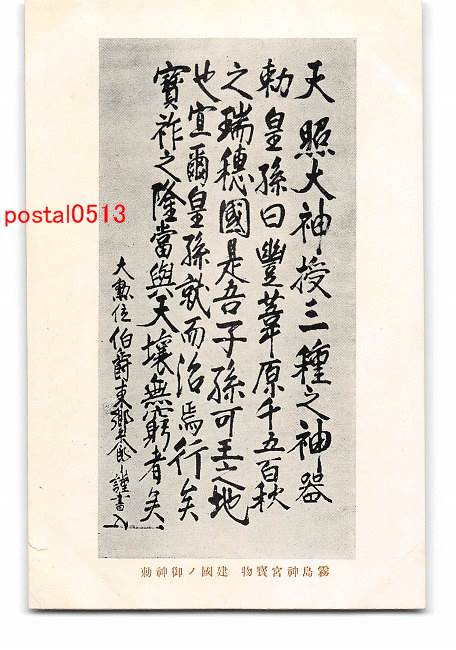 天照大神授三種之神器
勅皇孫曰豐葦原千五百秋
之瑞穗國是吾子孫可王之地
也宜爾皇孫就而治焉行矣
寳祚之隆當與天壤無窮者矣
大勲位伯爵東郷平八郎謹書
postal0513
霧島神宮寳物 建國ノ御神勅